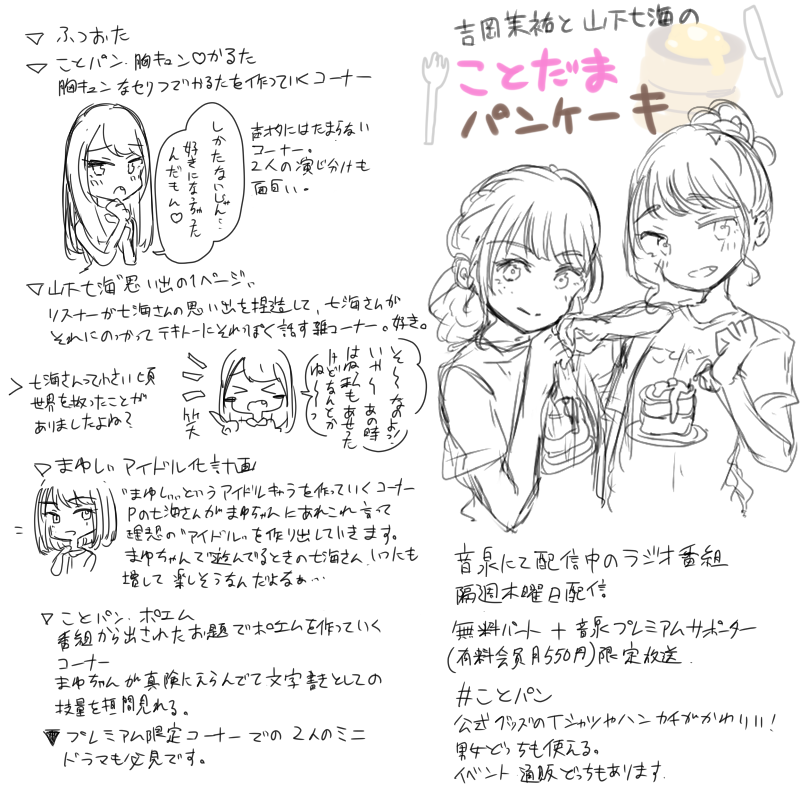 吉岡茉祐と山下七海の
ことだま
パンケーキ
▽ ふつおた
▽ ことパン.胸キュン♡かるた
胸キュンなセリフでかるたを作っていくコーナー
しかたないじゃん…
好きになっちゃった
んだもん♡
声オタにはたまらない
コーナー。
2人の演じ分けも
面白い。
▽山下七海“思い出の1ページ”
リスナーが七海さんの思い出を捏造して、七海さんが
それにのっかってテキトーにそれっぽく話す雑コーナー。好き。
> 七海さんって小さい頃
世界を救ったことが
ありましたよね?
笑
そ〜なのよ!!
いや〜あの時
はね
けどなんとか
ね〜っ
▽まゆしぃアイドル化計画
“まゆしぃ”というアイドルキャラを作っていくコーナー
Pの七海さんがまゆちゃんにあれこれ言て
理想の“アイドル”を作り出していきます。
まゆちゃんで遊んでるときの七海さん、いつにも
増して楽しそうなんだよなぁ…
▽ことパン.ポエム
番組から出されたお題でポエムを作っていく
コーナー
まゆちゃんが真険にえらんでて文字書きとしての
技量を垣間見れる。
▼プレミアム限定コーナーでの2人のミニ
ドラマも必見です。
音泉にて配信中のラジオ番組
隔週木曜日配信
無料パート + 音泉プレミアムサポーター
(有料会員月550円)限定放送.
#ことパン
公式グッズのTシャツやハンカチがかわいい!
男女どっちも使える。
イベント通販どっちもあります.